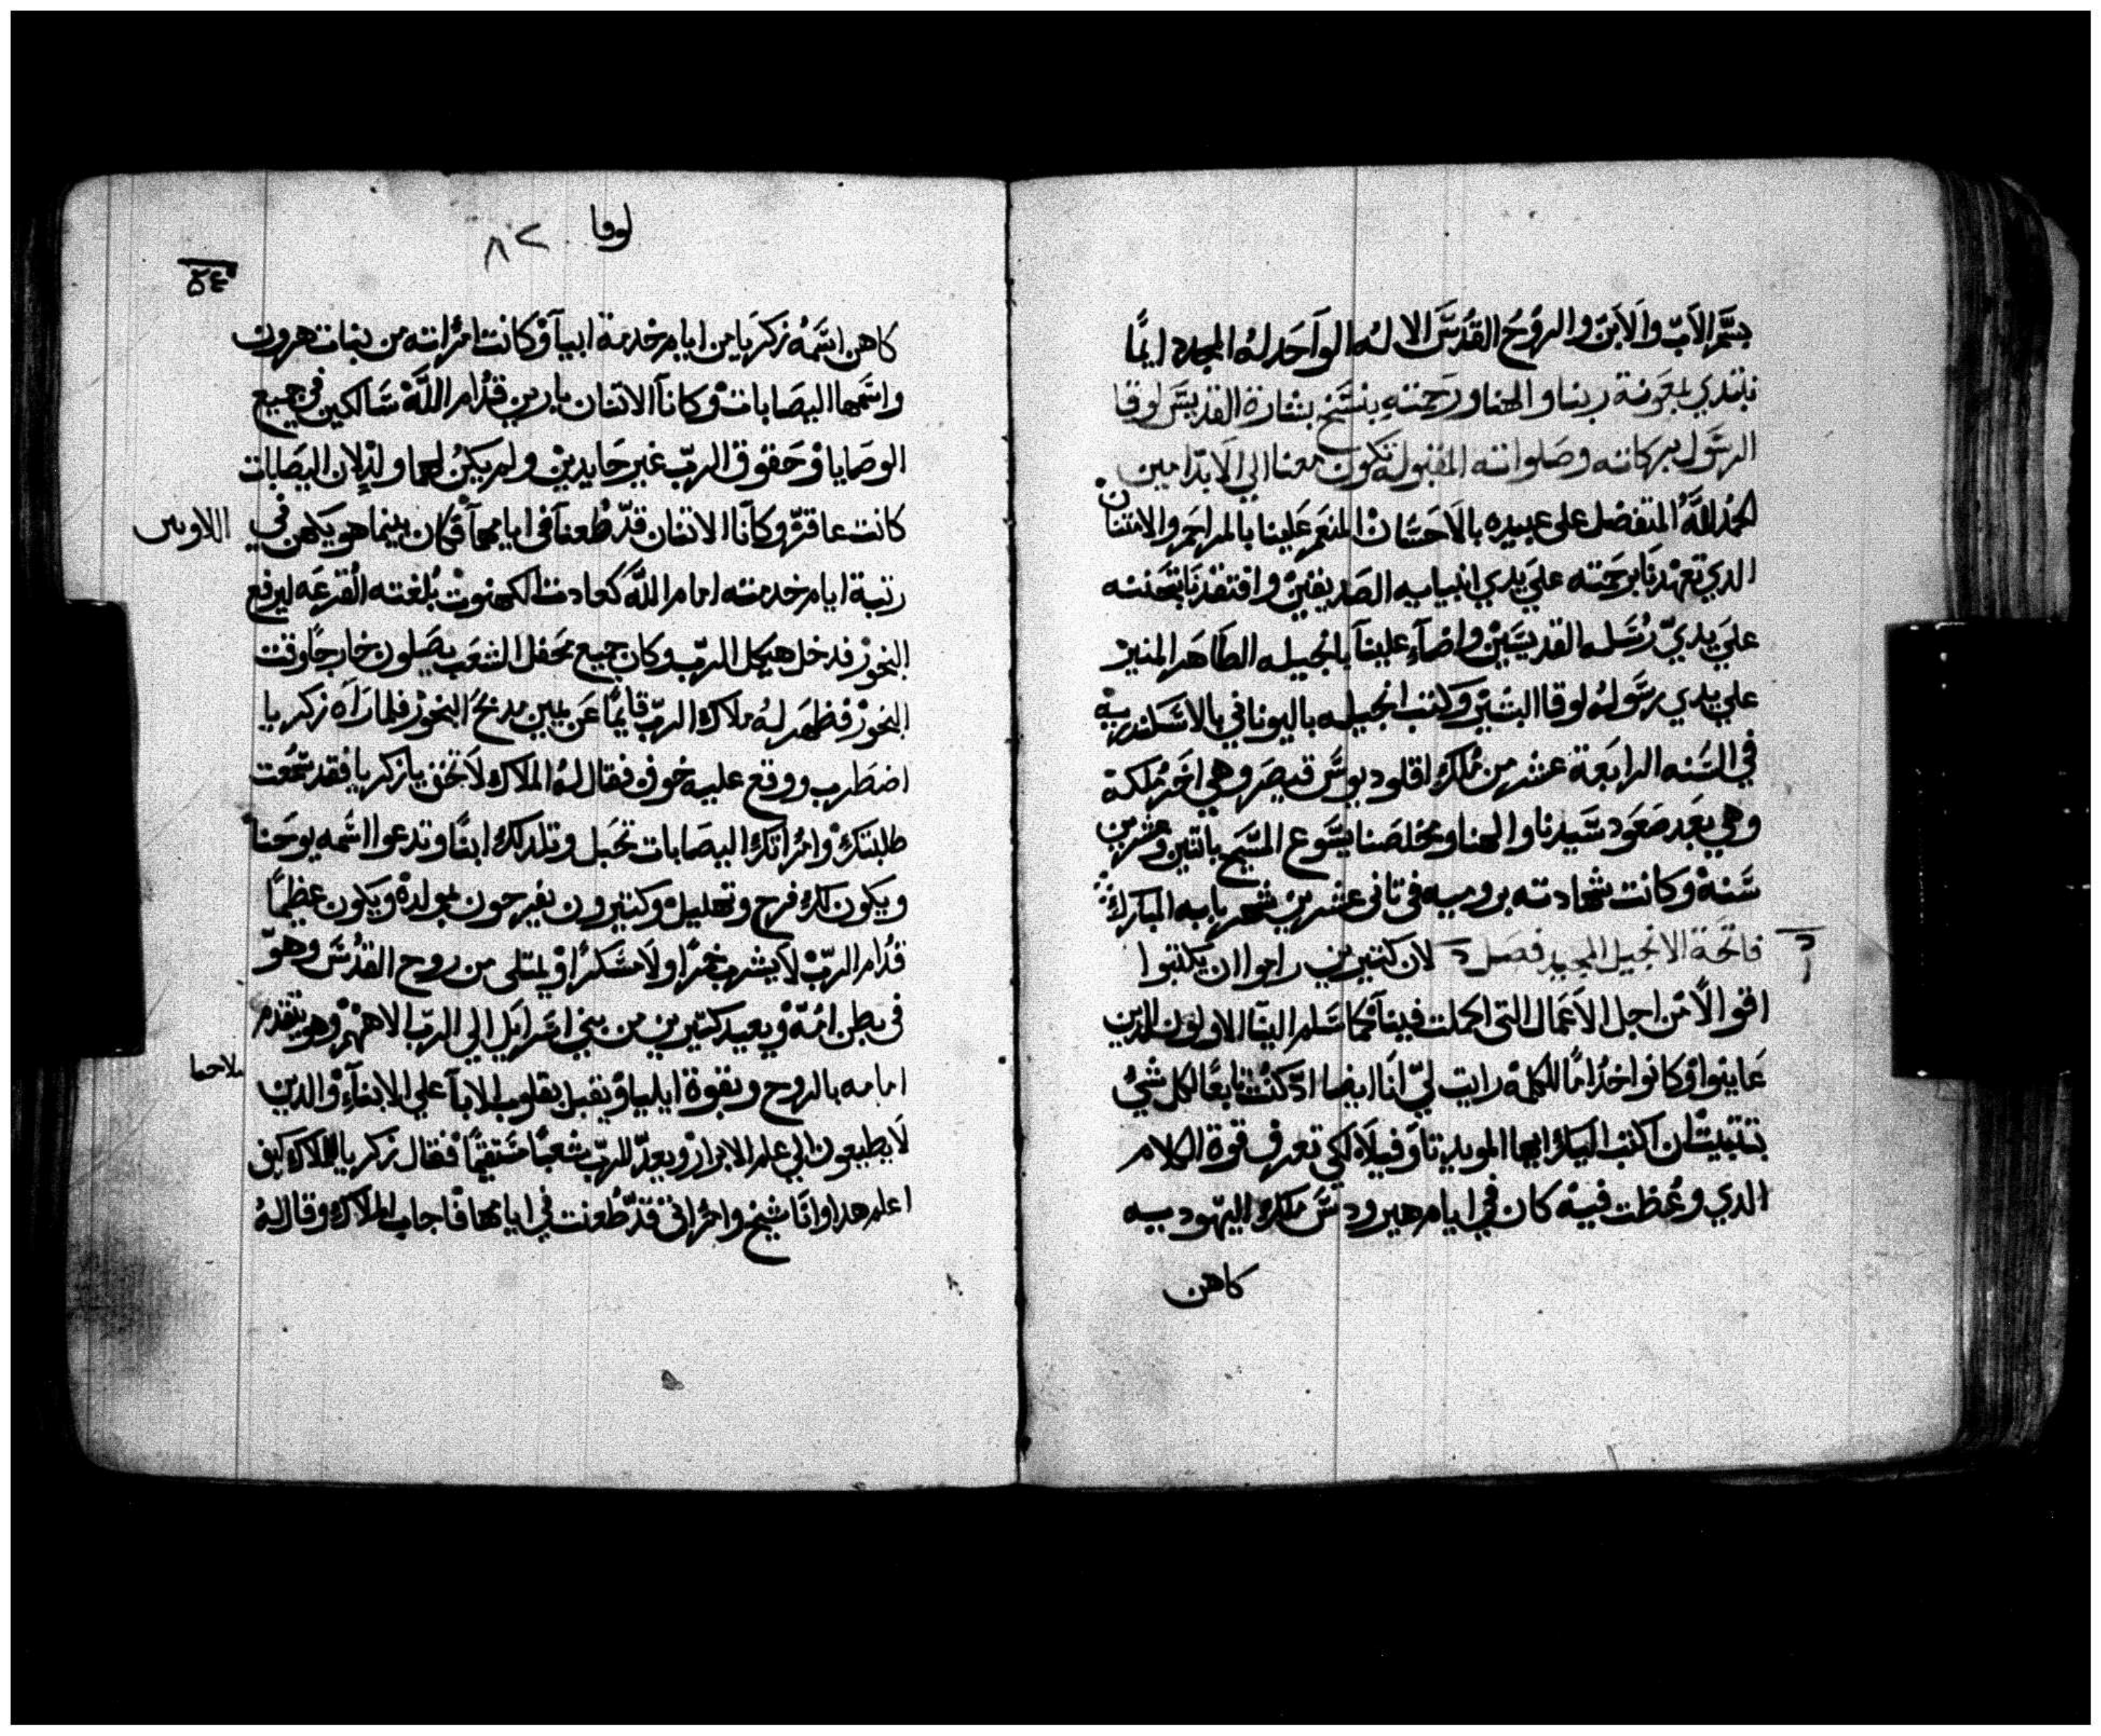 بسم الاب والابن والروح القدس الاله الواحد له المجد دايمًا
نبتدي بمعونة ربنا والهنا ورحمته بنسخ بشارة القديس لوقا
الرسول بركاته وصلواته المقبوله تكون معنا الي الابد امين
الحمد لله المتفضل على عبيده بالاحسان المنعم علينا بالمراحم والامتنان
الدي تعهدنا برحمته علي يدي انبيايه الصديقين وافتقدنا بتحننه
علي يدي رسله القديسين واضآء علينآ بانجيله الطاهر المنير
علي يدي رسوله لوقا البشير وكتب انجيله باليوناني بالاسكندريه
في السنه الرابعة عشر من ملك اقلوديوس قيصر وهي اخر مملكة
وهي بعد صعود سيدنا والهنا ومخلصنا يسوع المسيح باتنين وعشرين
سنة وكانت شهادته بروميه في تاني عشرين شهر بابه المبارك
فاتحة الانجيل المجيد فصل لان كتيرين راموا ان يكتبوا
اقوالًا من اجل الاعمال التى اكملت فينآ كما سلم الينآ الاولون الدين
عاينوا وكانوا خدامًا للكلمة رايت لي انا ايضا اد كنت تابعًا لكل شي
بتتبيت ان اكتب اليك ايها المويد تاوفيلا لكي تعرف قوة الكلام
الدي وعظت فيه كان في ايام هيرودس ملك اليهوديه
كاهن
لوقا ٨٢
كاهن اسمه زكريا من ايام خدمة ابيآ وكانت امراته من بنات هرون
واسمها اليصابات وكانآ الاتنان بارين قدام الله سالكين في جميع
الوصايا وحقوق الرب غير حايدين ولم يكن لهما ولد لان اليصابات
كانت عاقرة وكانا الاتنان قد طعنآ في ايامهمآ فكان بينما هو يكهن في
رتبة ايام خدمته امام الله كعادت الكهنوت بلغته القرعه ليرفع
البخور فدخل هيكل الرب وكان جميع محفل الشعب يصلون خارجًا وقت
البخور فظهر له ملاك الرب قايمًا عن يمين مدبح البخور فلما راه زكريا
اضطرب ووقع عليه خوف فقال له الملاك لا تخف يا زكريا فقد سمعت
طلبتك وامراتك اليصابات تحبل وتلد لك ابنًا وتدعوا اسمه يوحنا
ويكون لك فرح وتهليل وكتيرون يفرحون بمولده ويكون عظيمًا
قدام الرب لا يشرب خمرًا ولا مسكرًا ويمتلى من روح القدس وهو
فى بطن امه ويعيد كتيرين من بني اسرايل الي الرب الاههم وهو يتقدم
امامه بالروح وبقوة ايليا ويقبل بقلوب الابآ علي الابنآء والدين
لا يطيعون الي علم الابرار ويعد للرب شعبًا مستقيمًا فقال زكريا للملاك كيف
اعلم هدا وانا شيخ وامراتى قد طعنت في ايامها فاجاب الملاك وقال له